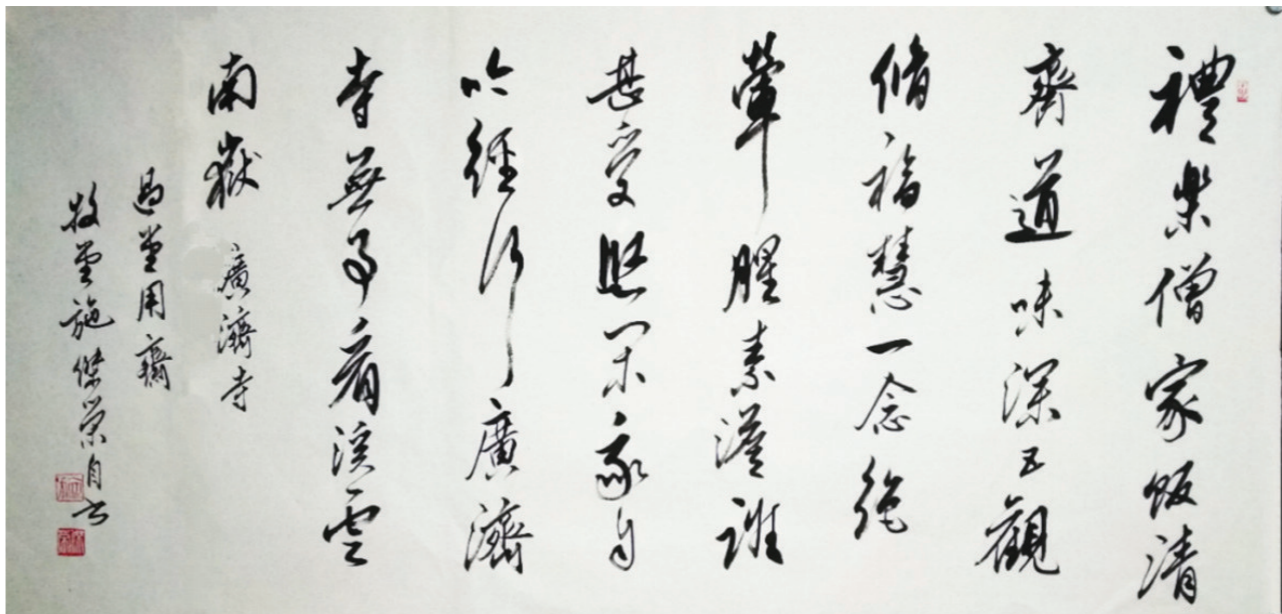 禮樂僧家飯清
齋道味深五觀
脩福慧一念絶
葷腥素淡誰
甚受閑我自
吟經行廣濟
寺無事看溪雲
南嶽 廣濟寺
過堂用齋
牧雲施傑榮自書